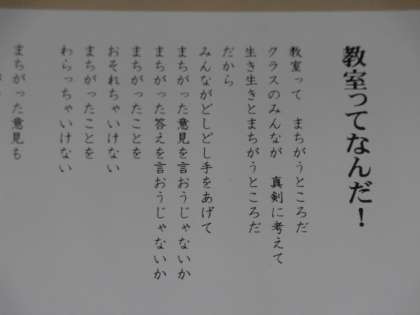 教室ってなんだ！
教室って　まちがうところだ
クラスのみんなが　真剣に考えて
生き生きとまちがうところだ
だから
みんながどしどし手をあげて
まちがった意見を言おうじゃないか
まちがった答えを言おうじゃないか
まちがったことを
おそれちゃいけない
まちがったことを
わらっちゃいけない
まちがった意見も